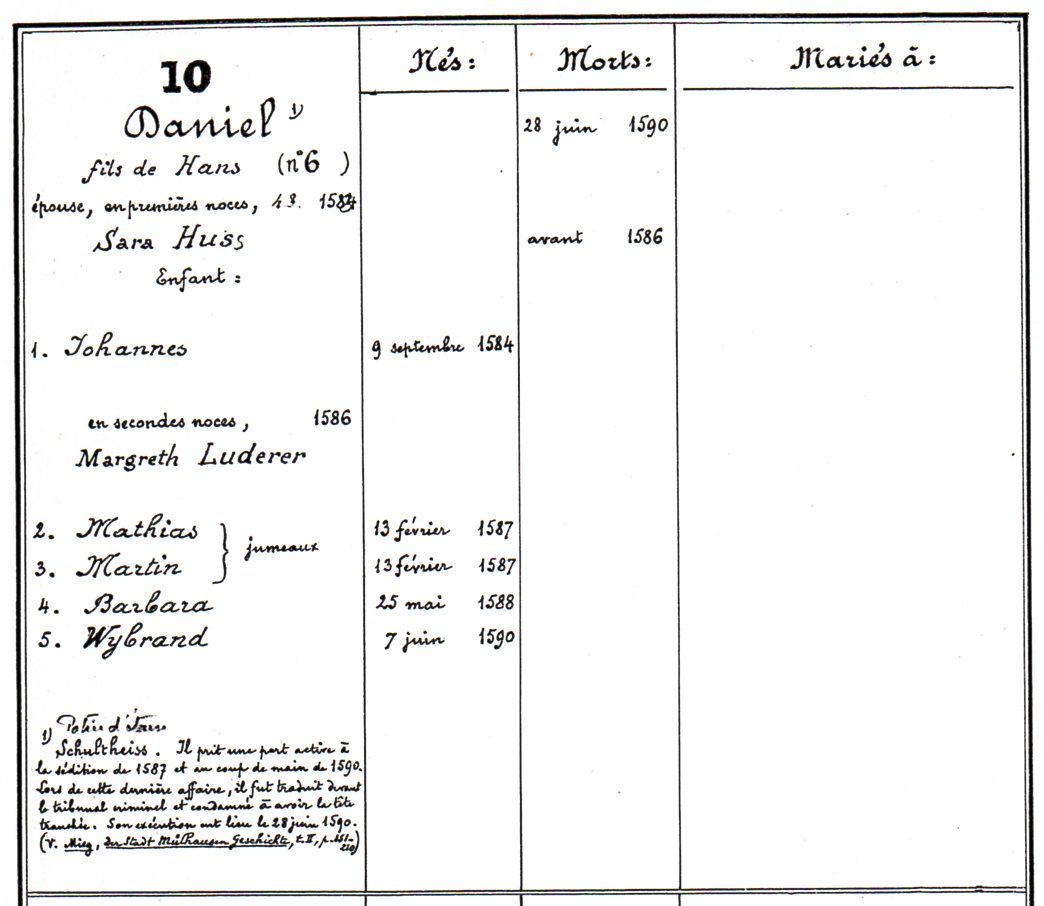 10
Nés :
Morts :
Mariés à :
Daniel 1)
28 juin 1590
fils de Hans (n°6 )
épouse, en premières noces, 4 3. 1584
Sara Huss
avant 1586
Enfant :
1. Johannes
9 septembre 1584
en secondes noces, 1586
Margreth Luderer
2. Mathias
13 février 1587
jumeaux
3. Martin
13 février 1587
4. Barbara
25 mai 1588
5. Wybrand
7 juin 1590
1) Potier d'étain
Schultheiss. Il prit une part active à
la sédition de 1587 et au coup de main de 1590.
Lors de cette dernière affaire, il fut traduit devant
le tribunal criminel et condamné à avoir la tête
tranchée. Son exécution eut lieu le 28 juin 1590.
(V. Mieg, der Stadt Mülhausen Geschichte, t. II, p.